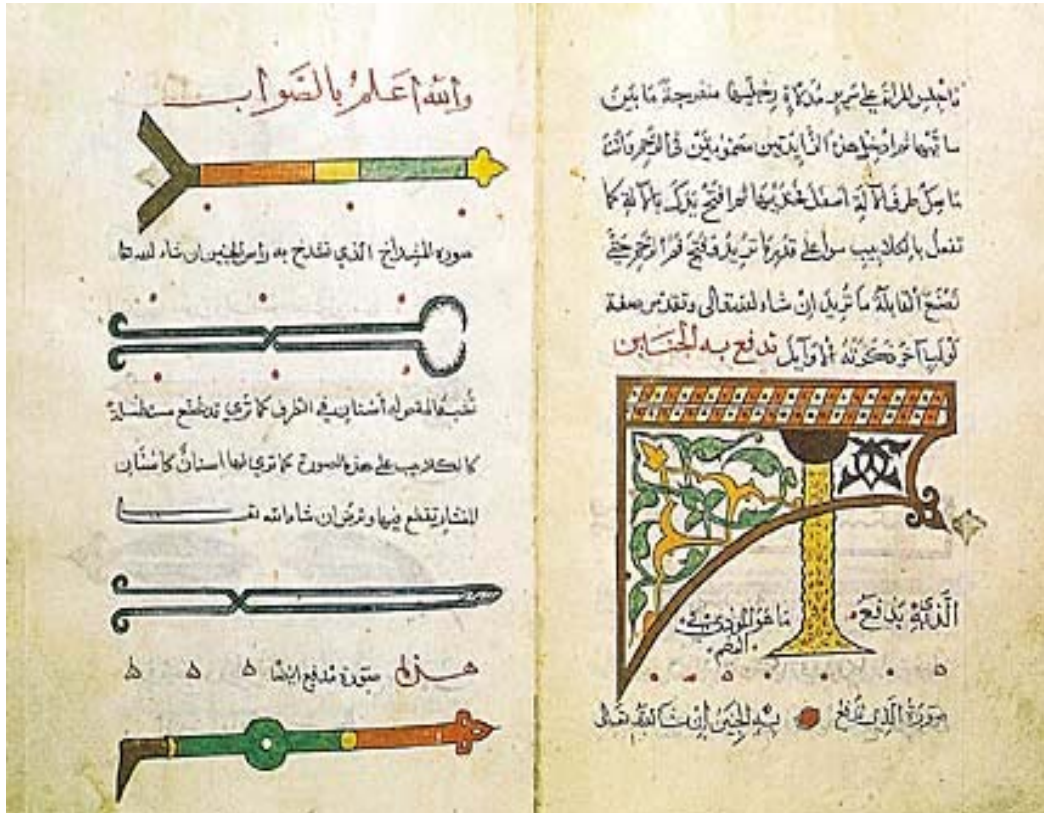 فاجلس المراة على سرير مدلاة رجليها منفرجة ما بين
ساقيها ثم ادخل هذه الزايدتين مضمومتين في الرحم وانت
ماسك طرف الآلة اسفل فخذيها ثم افتح يدك بالآلة كما
تفعل بالكلاليب سوا على قدر ما تريد فتح فم الرحم حتى
تصنع القابلة ما تريد ان شاء الله تعالى صفة
لولب آخر ذكرته الاوايل تدفع به الجنين
الذي يدفع
ما هو في
الفم
صورة الذي تدفع به الجنين إن شا الله تعالى
والله أعلم بالصواب
صورة المشداخ الذي تشدخ به رأس الجنين ان شاء الله
له أسنان في الطرف كما ترى قد تصنع مستطيلة
كالكلاليب على هذه الصورة كما ترى لها اسنان كاسنان
المنشار يقطع بها وترض ان شاء الله
هذه صورة مدفع ايضا